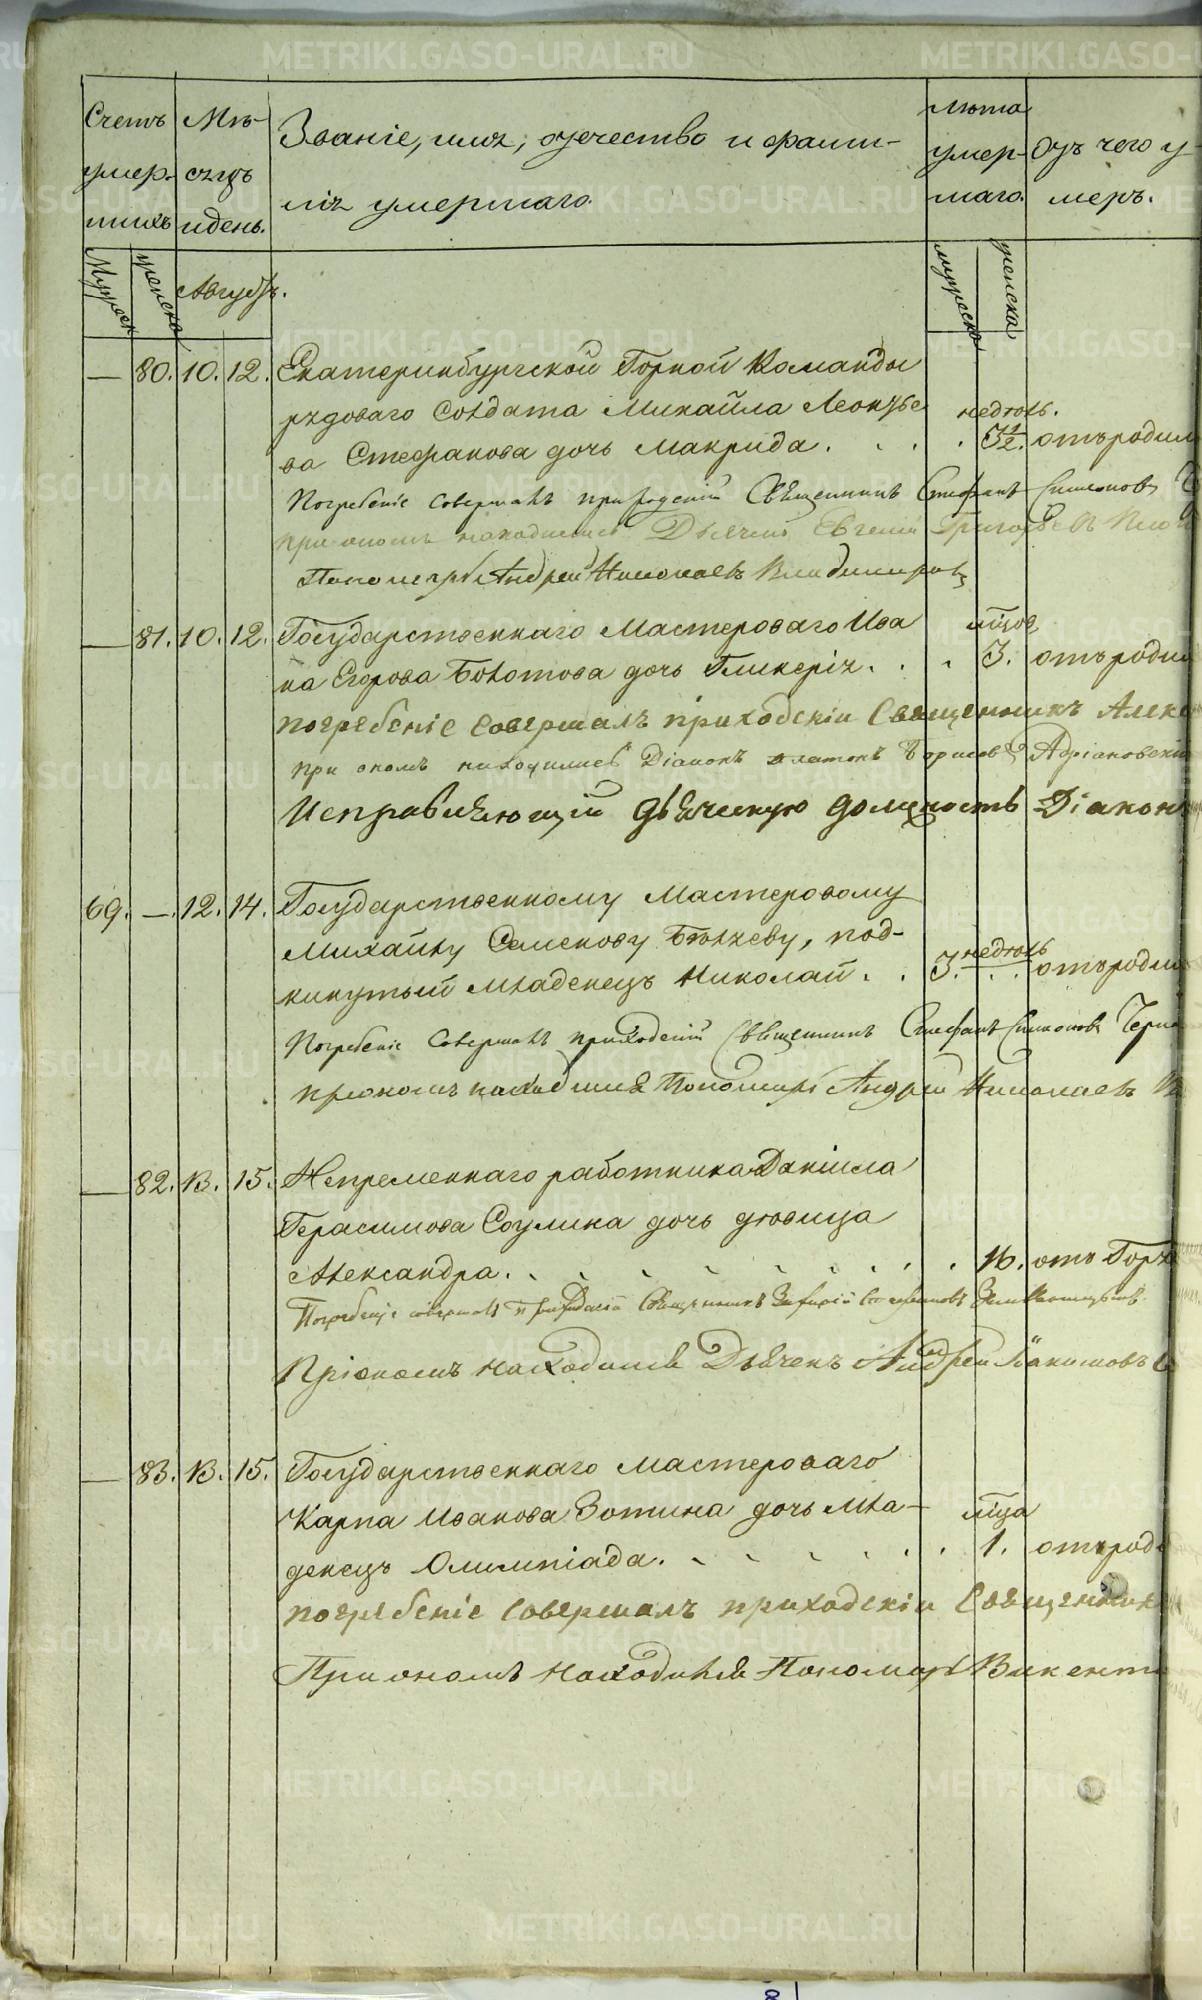 METRIKI.GASO-URAL.RU
Счетъ умер-шихъ
Мѣ-сяцъ и день.
Званіе, имя, отчество и фами-
лія умершаго.
лѣта умер-шаго.
отъ чего у-
меръ.
Мужеск
женска
Августъ.
мужеска
женска
— 80. 10. 12. Екатеринбургской Горной Команды
рядоваго Солдата Михайла Леонтье недѣль.
ва Стефанова дочь Макрида. . . . 3½. отъ родим
Погребеніе совершалъ приходскій Священникъ Стефанъ Симоновъ
при ономъ находились Дьячекъ Евгеній Григорьевъ
Пономарь Андрей Николаевъ Владимировъ
— 81. 10. 12. Государственнаго Мастероваго Ива мцов
на Егорова Болотова дочь Гликерія. . . 3. отъ родим
погребеніе совершалъ приходскіи Священникъ Алекс
при ономъ находились Діаконъ Платонъ Борисовъ Адріановскій
Исправляющій дьяческую должность Діаконъ
69. — 12. 14. Государственному Мастеровому
Михайлу Семенову Бѣляеву, под- недѣль
кинутый младенецъ Николай. . 3. . . отъ родим
Погребеніе совершалъ приходскій Священникъ Стефанъ Симоновъ
при ономъ находился Пономарь Андрей Николаевъ
— 82. 13. 15. Непременнаго работника Даніила
Герасимова Соулина дочь девица
Александра. . . . . . . . . 16. отъ Горя
Погребеніе совершалъ Приходскій Священникъ
При ономъ находился Дьячекъ Андрей
— 83. 13. 15. Государственнаго мастероваго
Карпа Иванова Зотина дочь мла- мца
денецъ Олимпіада. . . . . . . 1. отъ роди
погребеніе совершалъ приходскіи Священник
При ономъ находился Пономарь Викенти